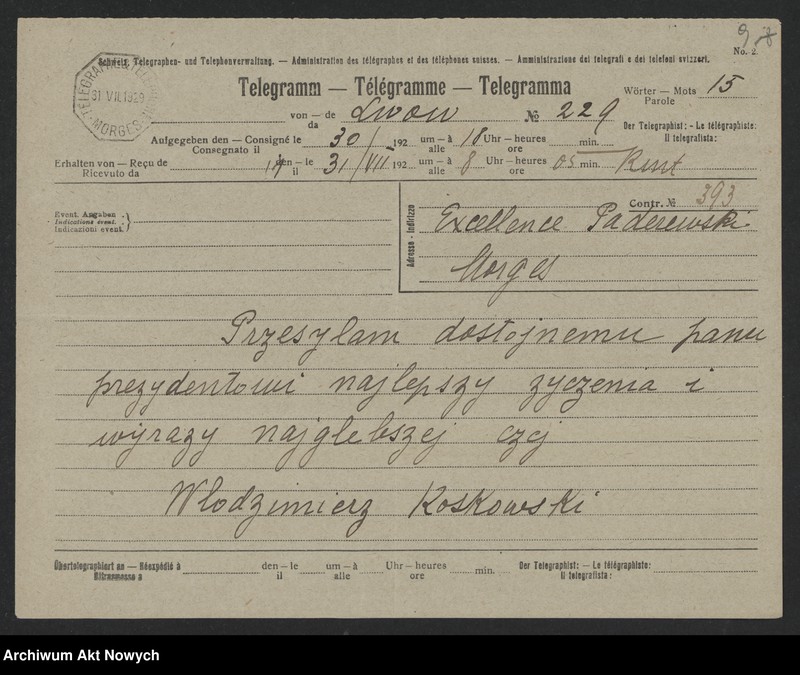 No. 2.
Schweiz. Telegraphen- und Telephonverwaltung. — Administration des télégraphes et des téléphones suisses. — Amministrazione dei telegrafi e dei telefoni svizzeri.
Telegramm — Télégramme — Telegramma
Wörter — Mots 15
Parole
31 VII.1929
MORGES
von — de Lwow № 229
da
Der Telegraphist: - Le télégraphiste:
Il telegrafista:
Aufgegeben den — Consigné le 30/ 192 um — à 18 Uhr — heures min.
Consegnato il alle ore
Erhalten von — Reçu de den — le 31/VII 192 um — à 8 Uhr — heures 05 min.
Ricevuto da il alle ore
Contr. № 393
Event. Angaben
Indications évent.
Indicazioni event.
Adresse - Indirizzo
Excellence Paderewski
Morges
Przesylam dostojnemu panu
prezydentowi najlepszy zyczenia i
wyrazy najglebszej czej
Wlodzimierz Koskowski
Übertelegraphiert an — Réexpédié à den — le um — à Uhr — heures min. Der Telegraphist: — Le télégraphiste:
Ritrasmesso a il alle ore Il telegrafista:
Archiwum Akt Nowych